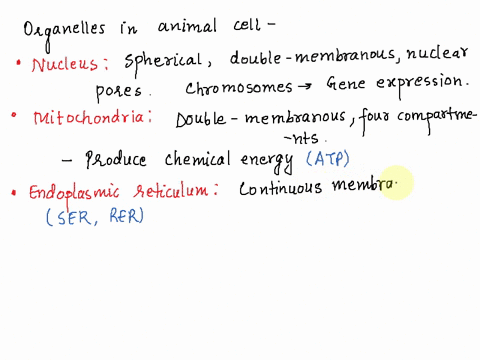 Organelles in animal cell -
• Nucleus: Spherical, double-membranous, nuclear
pores. Chromosomes → Gene expression.
• Mitochondria: Double-membranous, four compartme-
-nts.
- Produce chemical energy (ATP)
• Endoplasmic reticulum: Continuous membra
(SER, RER)